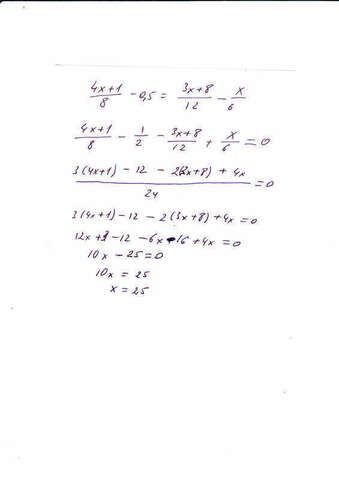 (4x+1)/8 - 0,5 = (3x+8)/12 - x/6
(4x+1)/8 - 1/2 - (3x+8)/12 + x/6 = 0
(3(4x+1) - 12 - 2(3x+8) + 4x)/24 = 0
3(4x+1) - 12 - 2(3x+8) + 4x = 0
12x + 3 - 12 - 6x - 16 + 4x = 0
10x - 25 = 0
10x = 25
x = 25